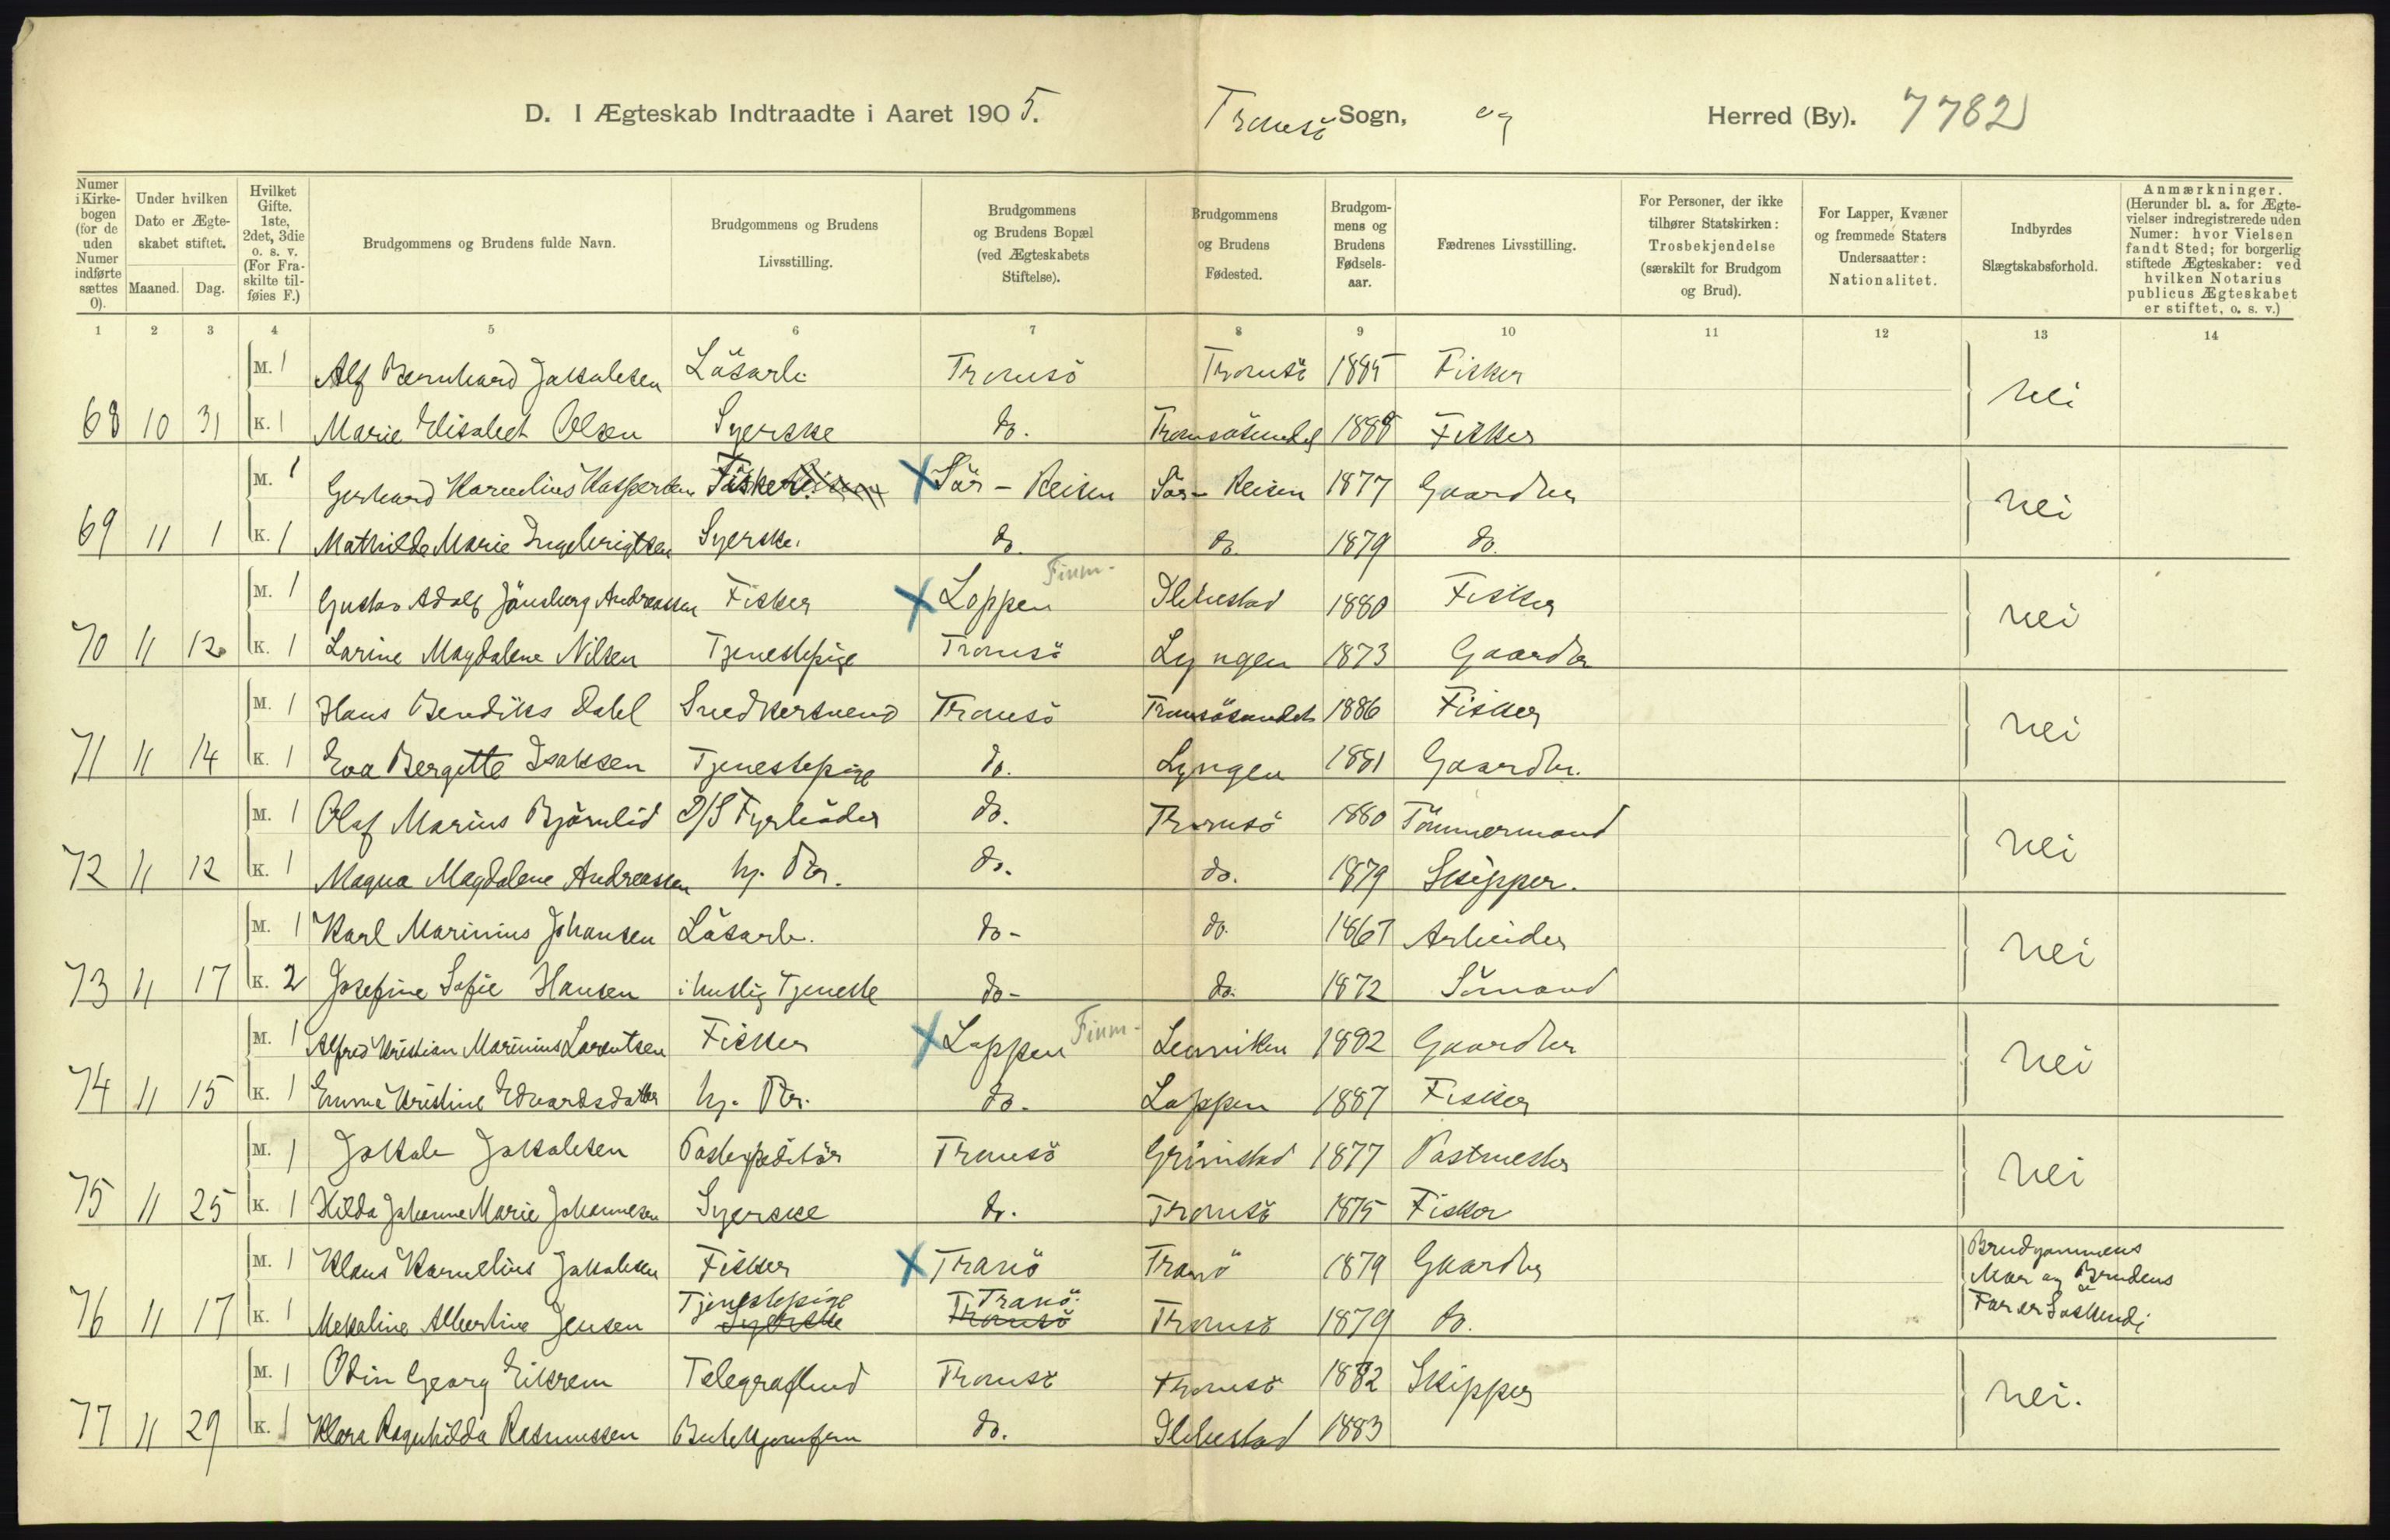 D. I Ægteskab Indtraadte i Aaret 1905. Tromsö Sogn, og Herred (By). 7782
Numer i Kirkebogen (for de uden Numer indførte sættes 0).
Under hvilken Dato er Ægteskabet stiftet.
Maaned. Dag.
Hvilket Gifte. 1ste, 2det, 3die o. s. v. (For Fraskilte tilføies F.)
Brudgommens og Brudens fulde Navn.
Brudgommens og Brudens Livsstilling.
Brudgommens og Brudens Bopæl (ved Ægteskabets Stiftelse).
Brudgommens og Brudens Fødested.
Brudgommens og Brudens Fødselsaar.
Fædrenes Livsstilling.
For Personer, der ikke tilhører Statskirken: Trosbekjendelse (særskilt for Brudgom og Brud).
For Lapper, Kvæner og fremmede Staters Undersaatter: Nationalitet.
Indbyrdes Slægtskabsforhold.
Anmærkninger. (Herunder bl. a. for Ægtevielser indregistrerede uden Numer: hvor Vielsen fandt Sted; for borgerlig stiftede Ægteskaber: ved hvilken Notarius publicus Ægteskabet er stiftet, o. s. v.)
1 2 3 4 5 6 7 8 9 10 11 12 13 14
M. 1 Alf Bernhard Jakobsen Lösarb. Tromsö Tromsö 1885 Fisker nei
68 10 31 K. 1 Marie Elisabet Olsen Syerske do. Tromsösundet 1888 Fisker
M. 1 Gerhard Kornelius Kaspersen Fisker X Sör-Reisen Sör-Reisen 1877 Gaardbr nei
69 11 1 K. 1 Mathilde Marie Ingebrigtsen Syerske. do. do. 1879 do.
M. 1 Gustav Adolf Jönsberg Andreassen Fisker X Loppen Finm- Ibbestad 1880 Fisker nei
70 11 12 K. 1 Larine Magdalene Nilsen Tjenestepige Tromsö Lyngen 1873 Gaardbr
M. 1 Hans Bendiks Dahl Snedkersvend Tromsö Tromsösundet 1886 Fisker nei
71 11 14 K. 1 Eva Bergitte Isaksen Tjenestepige do. Lyngen 1881 Gaardbr.
M. 1 Olaf Marius Björnlid D/S Fyrböder do. Tromsö 1880 Tömmermand nei
72 11 12 K. 1 Magna Magdalene Andreassen hj. Dtr. do. do. 1879 Skipper.
M. 1 Karl Marinius Johansen Lösarb. do- do. 1867 Arbeider nei
73 11 17 K. 2 Josefine Sofie Hansen i huslig Tjeneste do- do. 1872 Sömand
M. 1 Alfred Kristian Marinius Lorentsen Fisker X Loppen Finm- Lenviken 1882 Gaardbr nei
74 11 15 K. 1 Emma Kristine Edvardsdatter hj. Dtr. do. Loppen 1887 Fisker
M. 1 Jakob Jakobsen Postexpeditör Tromsö Grimstad 1877 Postmester nei
75 11 25 K. 1 Hilda Johanne Marie Johannesen Syerske do. Tromsö 1875 Fisker
M. 1 Klaus Kornelius Jakobsen Fisker X Tranö Tranö 1879 Gaardbr Brudgommens
Mor og Brudens
76 11 17 K. 1 Mekaline Albertine Jensen Tjenestepige Syerske Tranö. Tromsö Tromsö 1879 do. Far er Söskende
M. 1 Odin Georg Eikrem Telegrafbud Tromsö Tromsö 1882 Skipper nei.
77 11 29 K. 1 Klara Ragnhilda Rasmussen Butikjomfru do. Ibbestad 1883